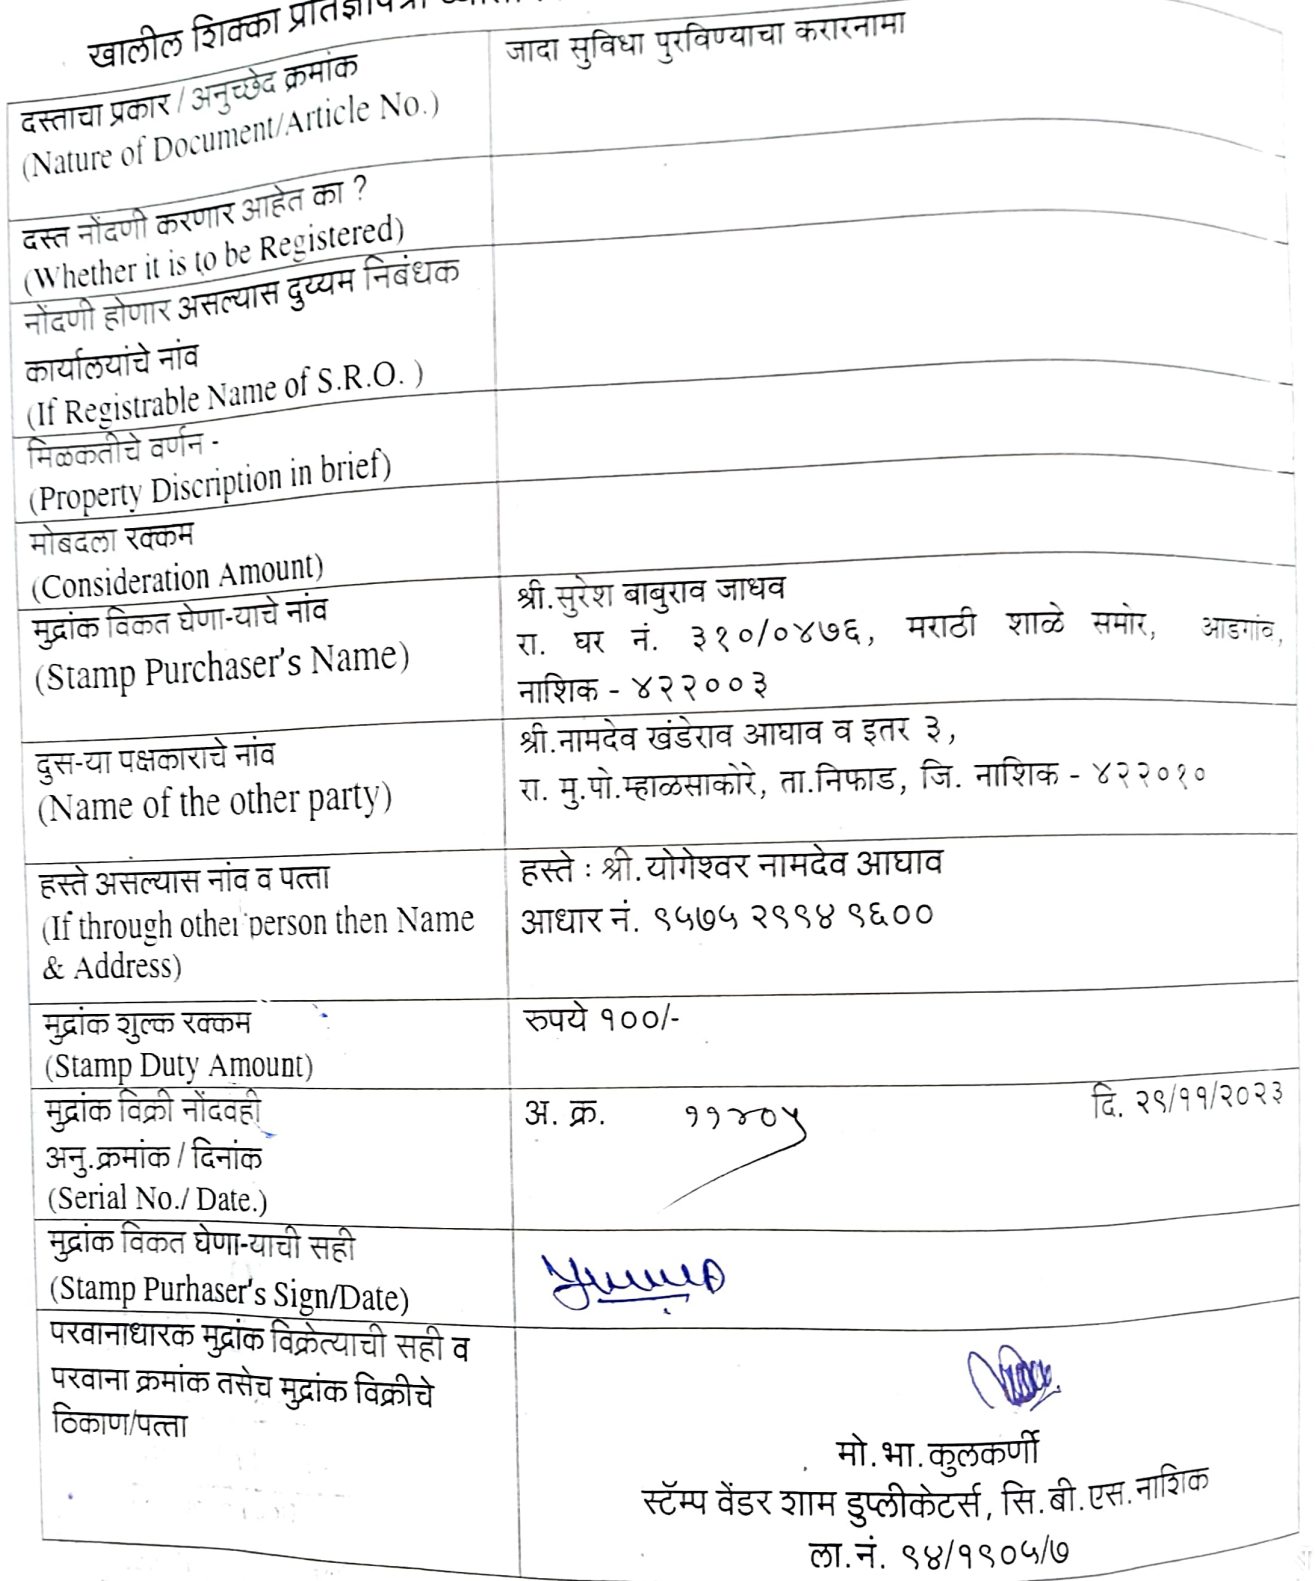 खालील शिक्का
दस्ताचा प्रकार / अनुच्छेद क्रमांक
(Nature of Document/Article No.)
जादा सुविधा पुरविण्याचा करारनामा
दस्त नोंदणी करणार आहेत का ?
(Whether it is to be Registered)
नोंदणी होणार असल्यास दुय्यम निबंधक
कार्यालयांचे नांव
(If Registrable Name of S.R.O. )
मिळकतीचे वर्णन -
(Property Discription in brief)
मोबदला रक्कम
(Consideration Amount)
मुद्रांक विकत घेणा-याचे नांव
(Stamp Purchaser's Name)
श्री.सुरेश बाबुराव जाधव
रा. घर नं. ३१०/०४७६, मराठी शाळे समोर, आडगांव,
नाशिक - ४२२००३
दुस-या पक्षकाराचे नांव
(Name of the other party)
श्री.नामदेव खंडेराव आघाव व इतर ३,
रा. मु.पो.म्हाळसाकोरे, ता.निफाड, जि. नाशिक - ४२२०१०
हस्ते असल्यास नांव व पत्ता
(If through other person then Name
& Address)
हस्ते : श्री.योगेश्वर नामदेव आघाव
आधार नं. ९५७५ २९९४ ९६००
मुद्रांक शुल्क रक्कम
(Stamp Duty Amount)
रुपये १००/-
मुद्रांक विक्री नोंदवही
अनु.क्रमांक / दिनांक
(Serial No./ Date.)
अ. क्र. ११४०५ दि. २९/११/२०२३
मुद्रांक विकत घेणा-याची सही
(Stamp Purhaser's Sign/Date)
परवानाधारक मुद्रांक विक्रेत्याची सही व
परवाना क्रमांक तसेच मुद्रांक विक्रीचे
ठिकाण/पत्ता
मो.भा.कुलकर्णी
स्टॅम्प वेंडर शाम डुप्लीकेटर्स, सि.बी.एस.नाशिक
ला.नं. ९४/१९०५/७